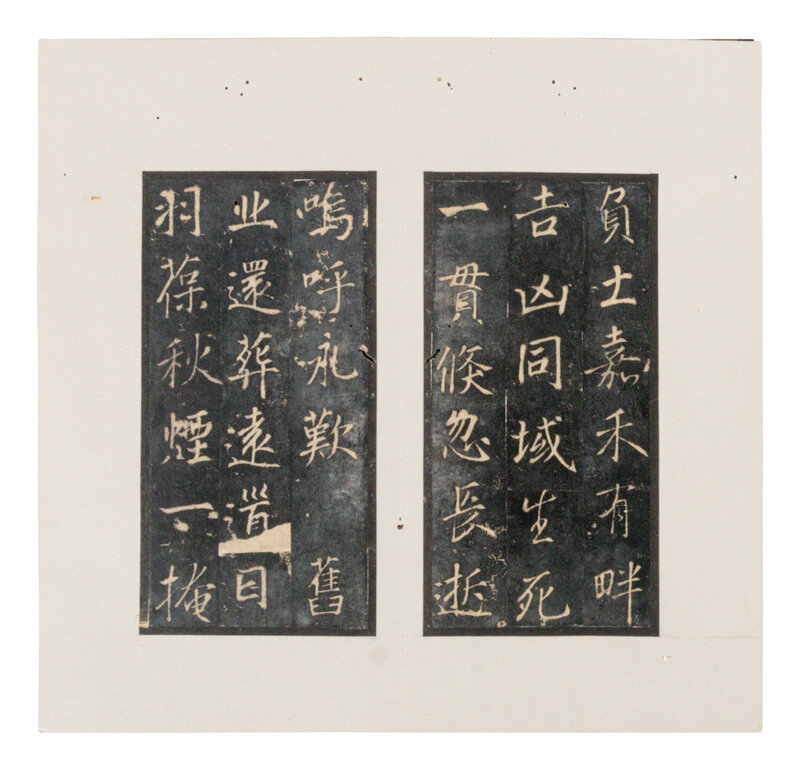 負土嘉禾有畔
吉凶同域生死
一貫倏忽長逝
嗚呼永歎　舊
业還葬遠道日
羽葆秋煙一掩